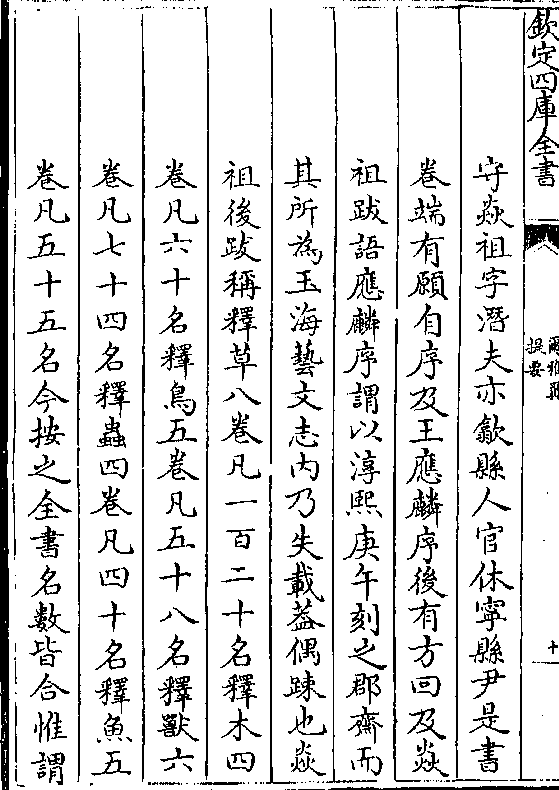 欽定四庫全書
爾雅翼
提要
十
守焱祖字潛夫亦歙縣人官休寧縣尹是書
卷端有願自序及王應麟序後有方回及焱
祖跋語應麟序謂以淳熙庚午刻之郡齋而
其所為玉海藝文志内乃失載葢偶踈也焱
祖後跋稱釋草八卷凡一百二十名釋木四
卷凡六十名釋鳥五卷凡五十八名釋獸六
卷凡七十四名釋蟲四卷凡四十名釋魚五
卷凡五十五名今按之全書名數皆合惟謂